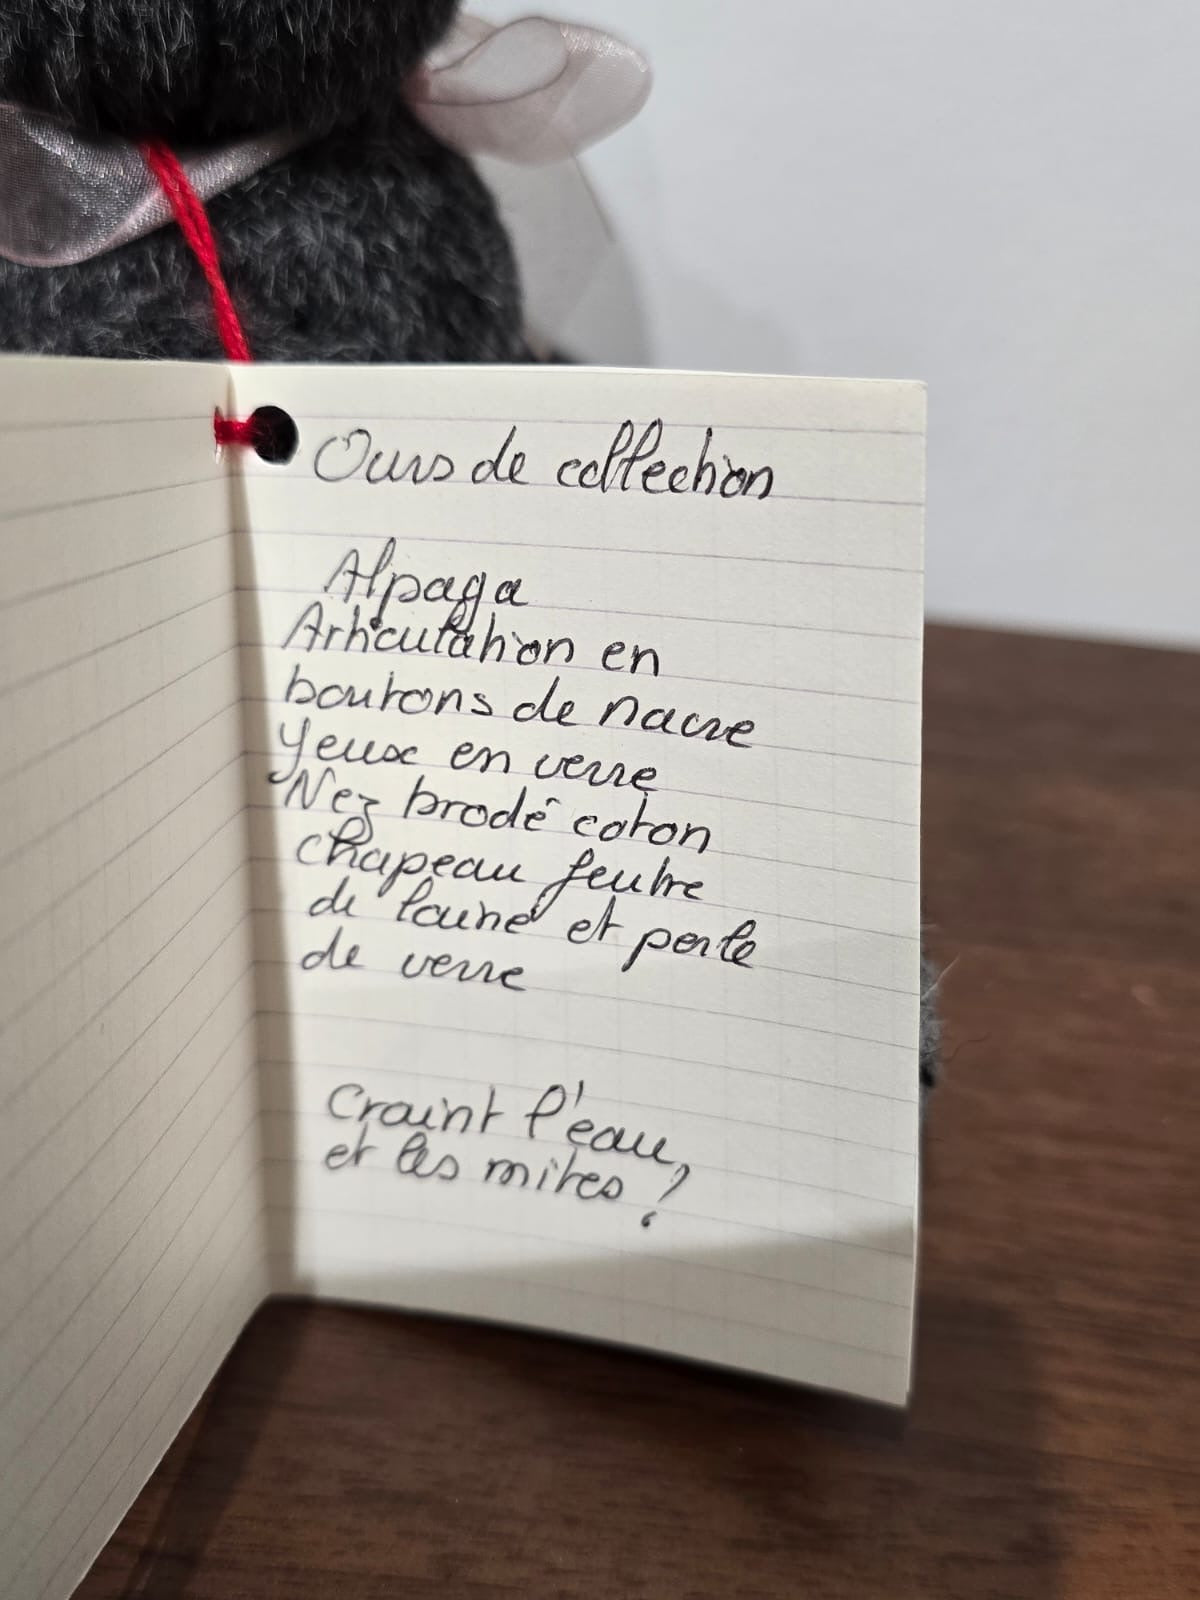 Ours de collection
Alpaga
Articulation en
boutons de nacre
Yeux en verre
Nez brodé coton
Chapeau feutre
de laine et perle
de verre
Craint l'eau,
et les mites !